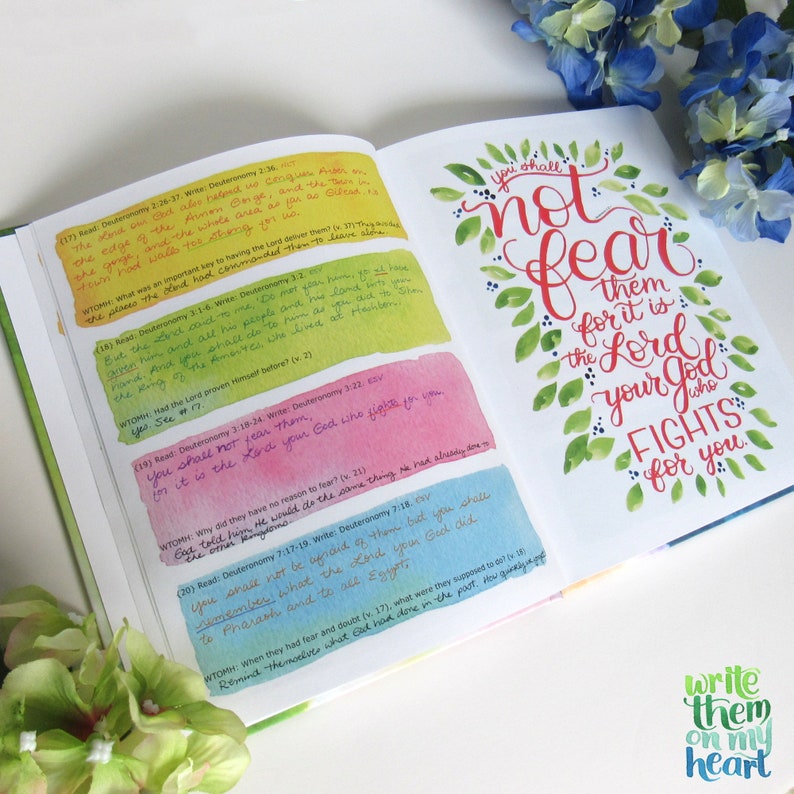 (17) Read: Deuteronomy 2:26-37. Write: Deuteronomy 2:36. NLT
The Lord our God also helped us conquer Aroer on
the edge of the Arnon Gorge, and the town in
the gorge, and the whole area as far as Gilead. No
town had walls too strong for us.
WTOMH: What was an important key to having the Lord deliver them? (v. 37) They avoided
the places the Lord had commanded them to leave alone.
(18) Read: Deuteronomy 3:1-6. Write: Deuteronomy 3:2. ESV
But the Lord said to me, 'Do not fear him, for I have
given him and all his people and his land into your
hand. And you shall do to him as you did to Sihon
the king of the Amorites, who lived at Heshbon.'
WTOMH: Had the Lord proven Himself before? (v. 2)
Yes. See #17.
(19) Read: Deuteronomy 3:18-24. Write: Deuteronomy 3:22. ESV
You shall not fear them,
for it is the Lord your God who fights for you.
WTOMH: Why did they have no reason to fear? (v. 21)
God told him He would do the same thing He had already done to
the other kingdoms.
(20) Read: Deuteronomy 7:17-19. Write: Deuteronomy 7:18. ESV
You shall not be afraid of them but you shall
remember what the Lord your God did
to Pharaoh and to all Egypt,
WTOMH: When they had fear and doubt (v. 17), what were they supposed to do? (v. 18)
Remind themselves what God had done in the past. How quickly we forget
you shall
not
fear
them
for it is
the Lord
your God
who
FIGHTS
for you.
write
them
on my
heart